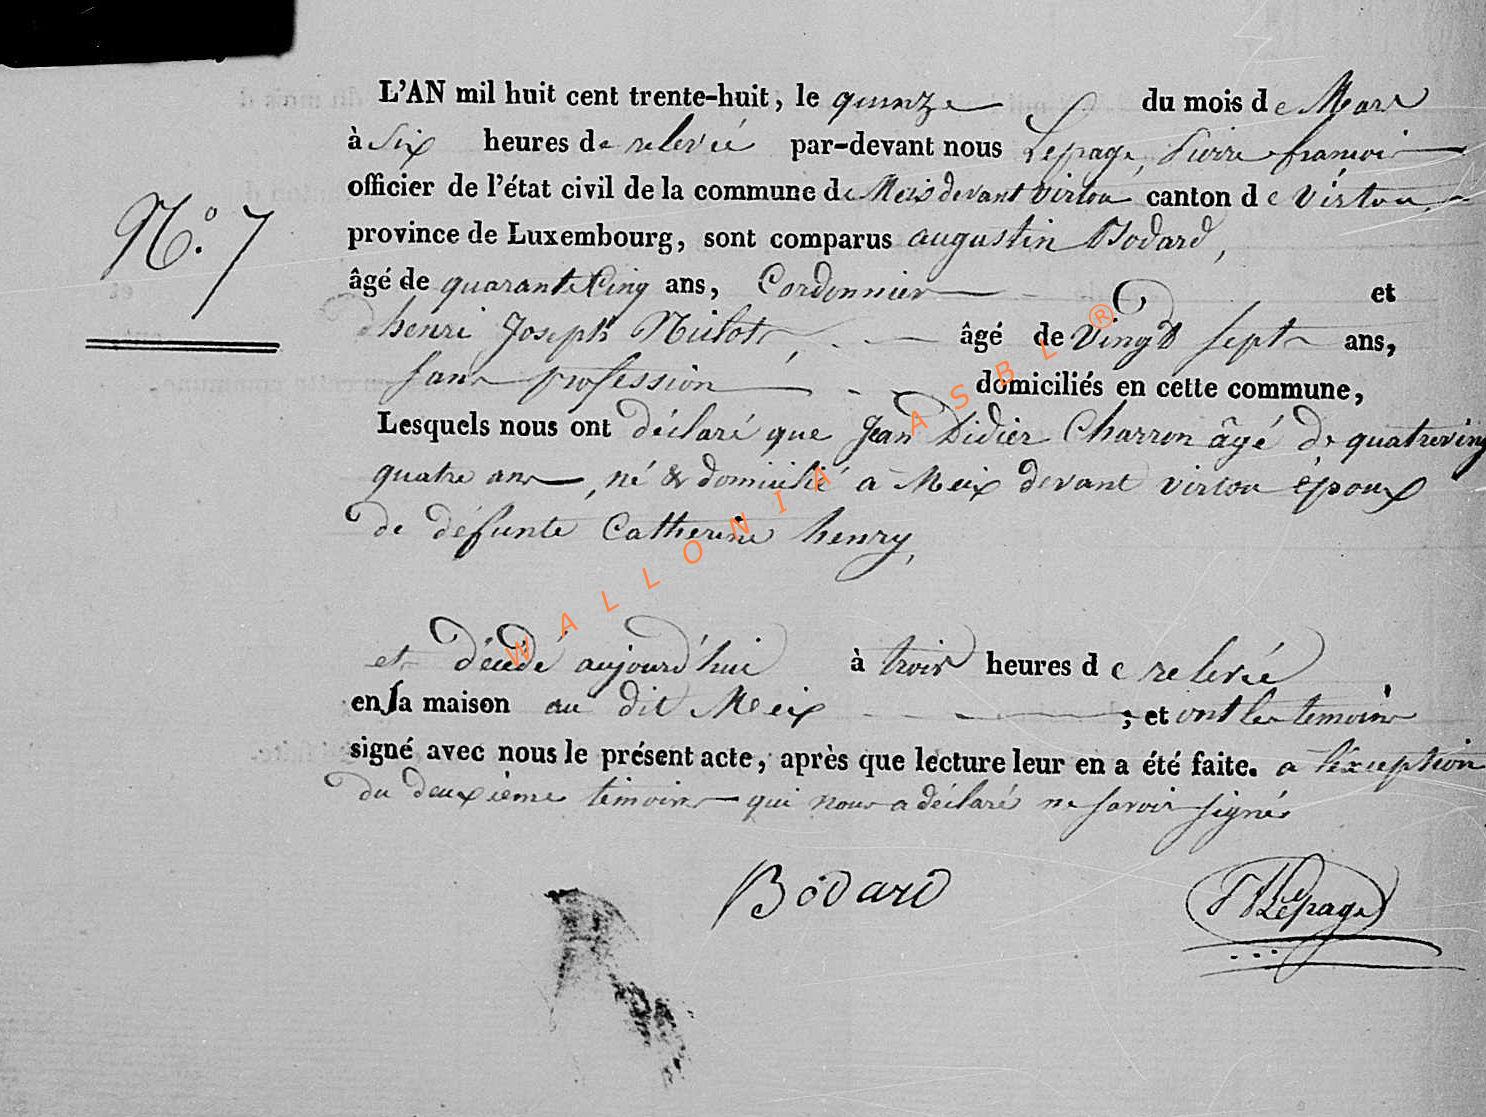 L'AN mil huit cent trente-huit, le quinze du mois de Mars
à Six heures de relevée par-devant nous Lepage, Pierre françois
officier de l'état civil de la commune de Meix devant Virton canton de Virton
N.° 7
province de Luxembourg, sont comparus augustin Bodard,
âgé de quarante Cinq ans, Cordonnier et
henri Joseph âgé de Vingt sept ans,
sans profession domiciliés en cette commune,
Lesquels nous ont déclaré que Jean Didier Charron âgé de quatreving
quatre ans, né & domicilié a Meix devant virton époux
de défunte Catherine henry,
et décédé aujourd'hui à trois heures de relevée
en sa maison au dit Meix ; et ont les temoins
signé avec nous le présent acte, après que lecture leur en a été faite. a l'exception
du deuxième temoins qui nous a déclaré ne savoir signés
Bodard
Lepage
WALLONIA ASBL ®